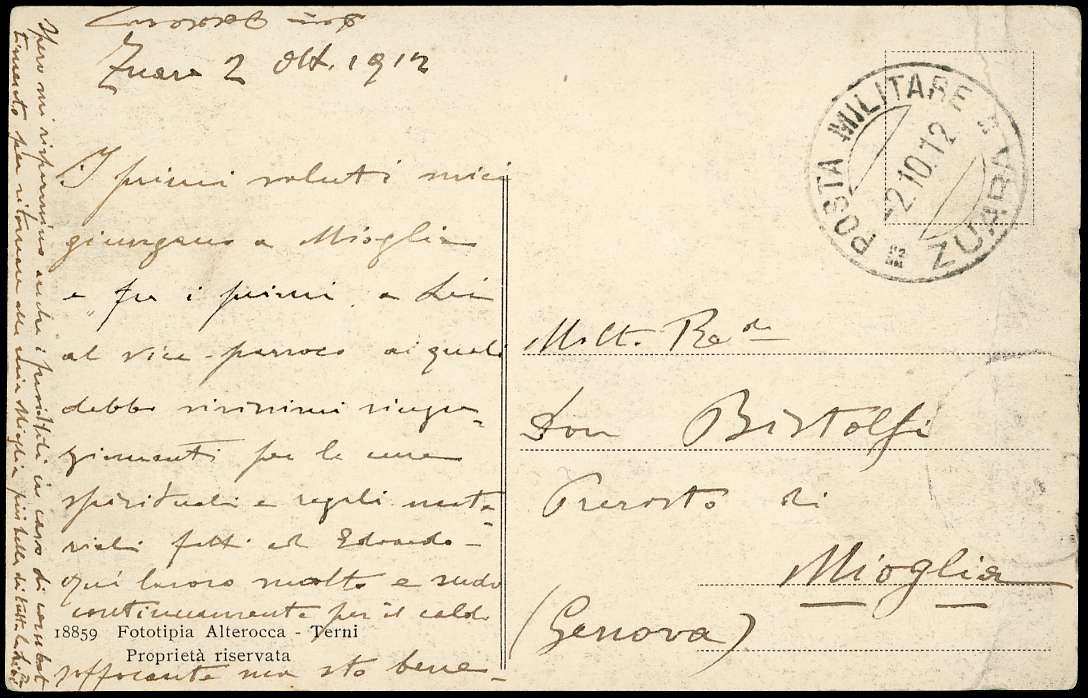 Zuara 2 Ott. 1912
I primi saluti miei
giungano a Mioglia
e fra i primi, a Lei
al vice-parroco ai quali
debbo vivissimi ringra-
ziamenti per le cure
spirituali e regali mate-
riali fatti ad Edoardo-
Qui lavoro molto e sudo
continuamente per il caldo
soffocante ma sto bene-
Spero mi risparmino anche i proiettili in caso di combat
timento per ritornare alla mia Mioglia più bella di tutta la
Don
POSTA MILITARE
ZUARA
2.10.12
Molt. Rev.do
Don Bistolfi
Prevosto di
Mioglia
(Genova)
18859 Fototipia Alterocca - Terni
Proprietà riservata